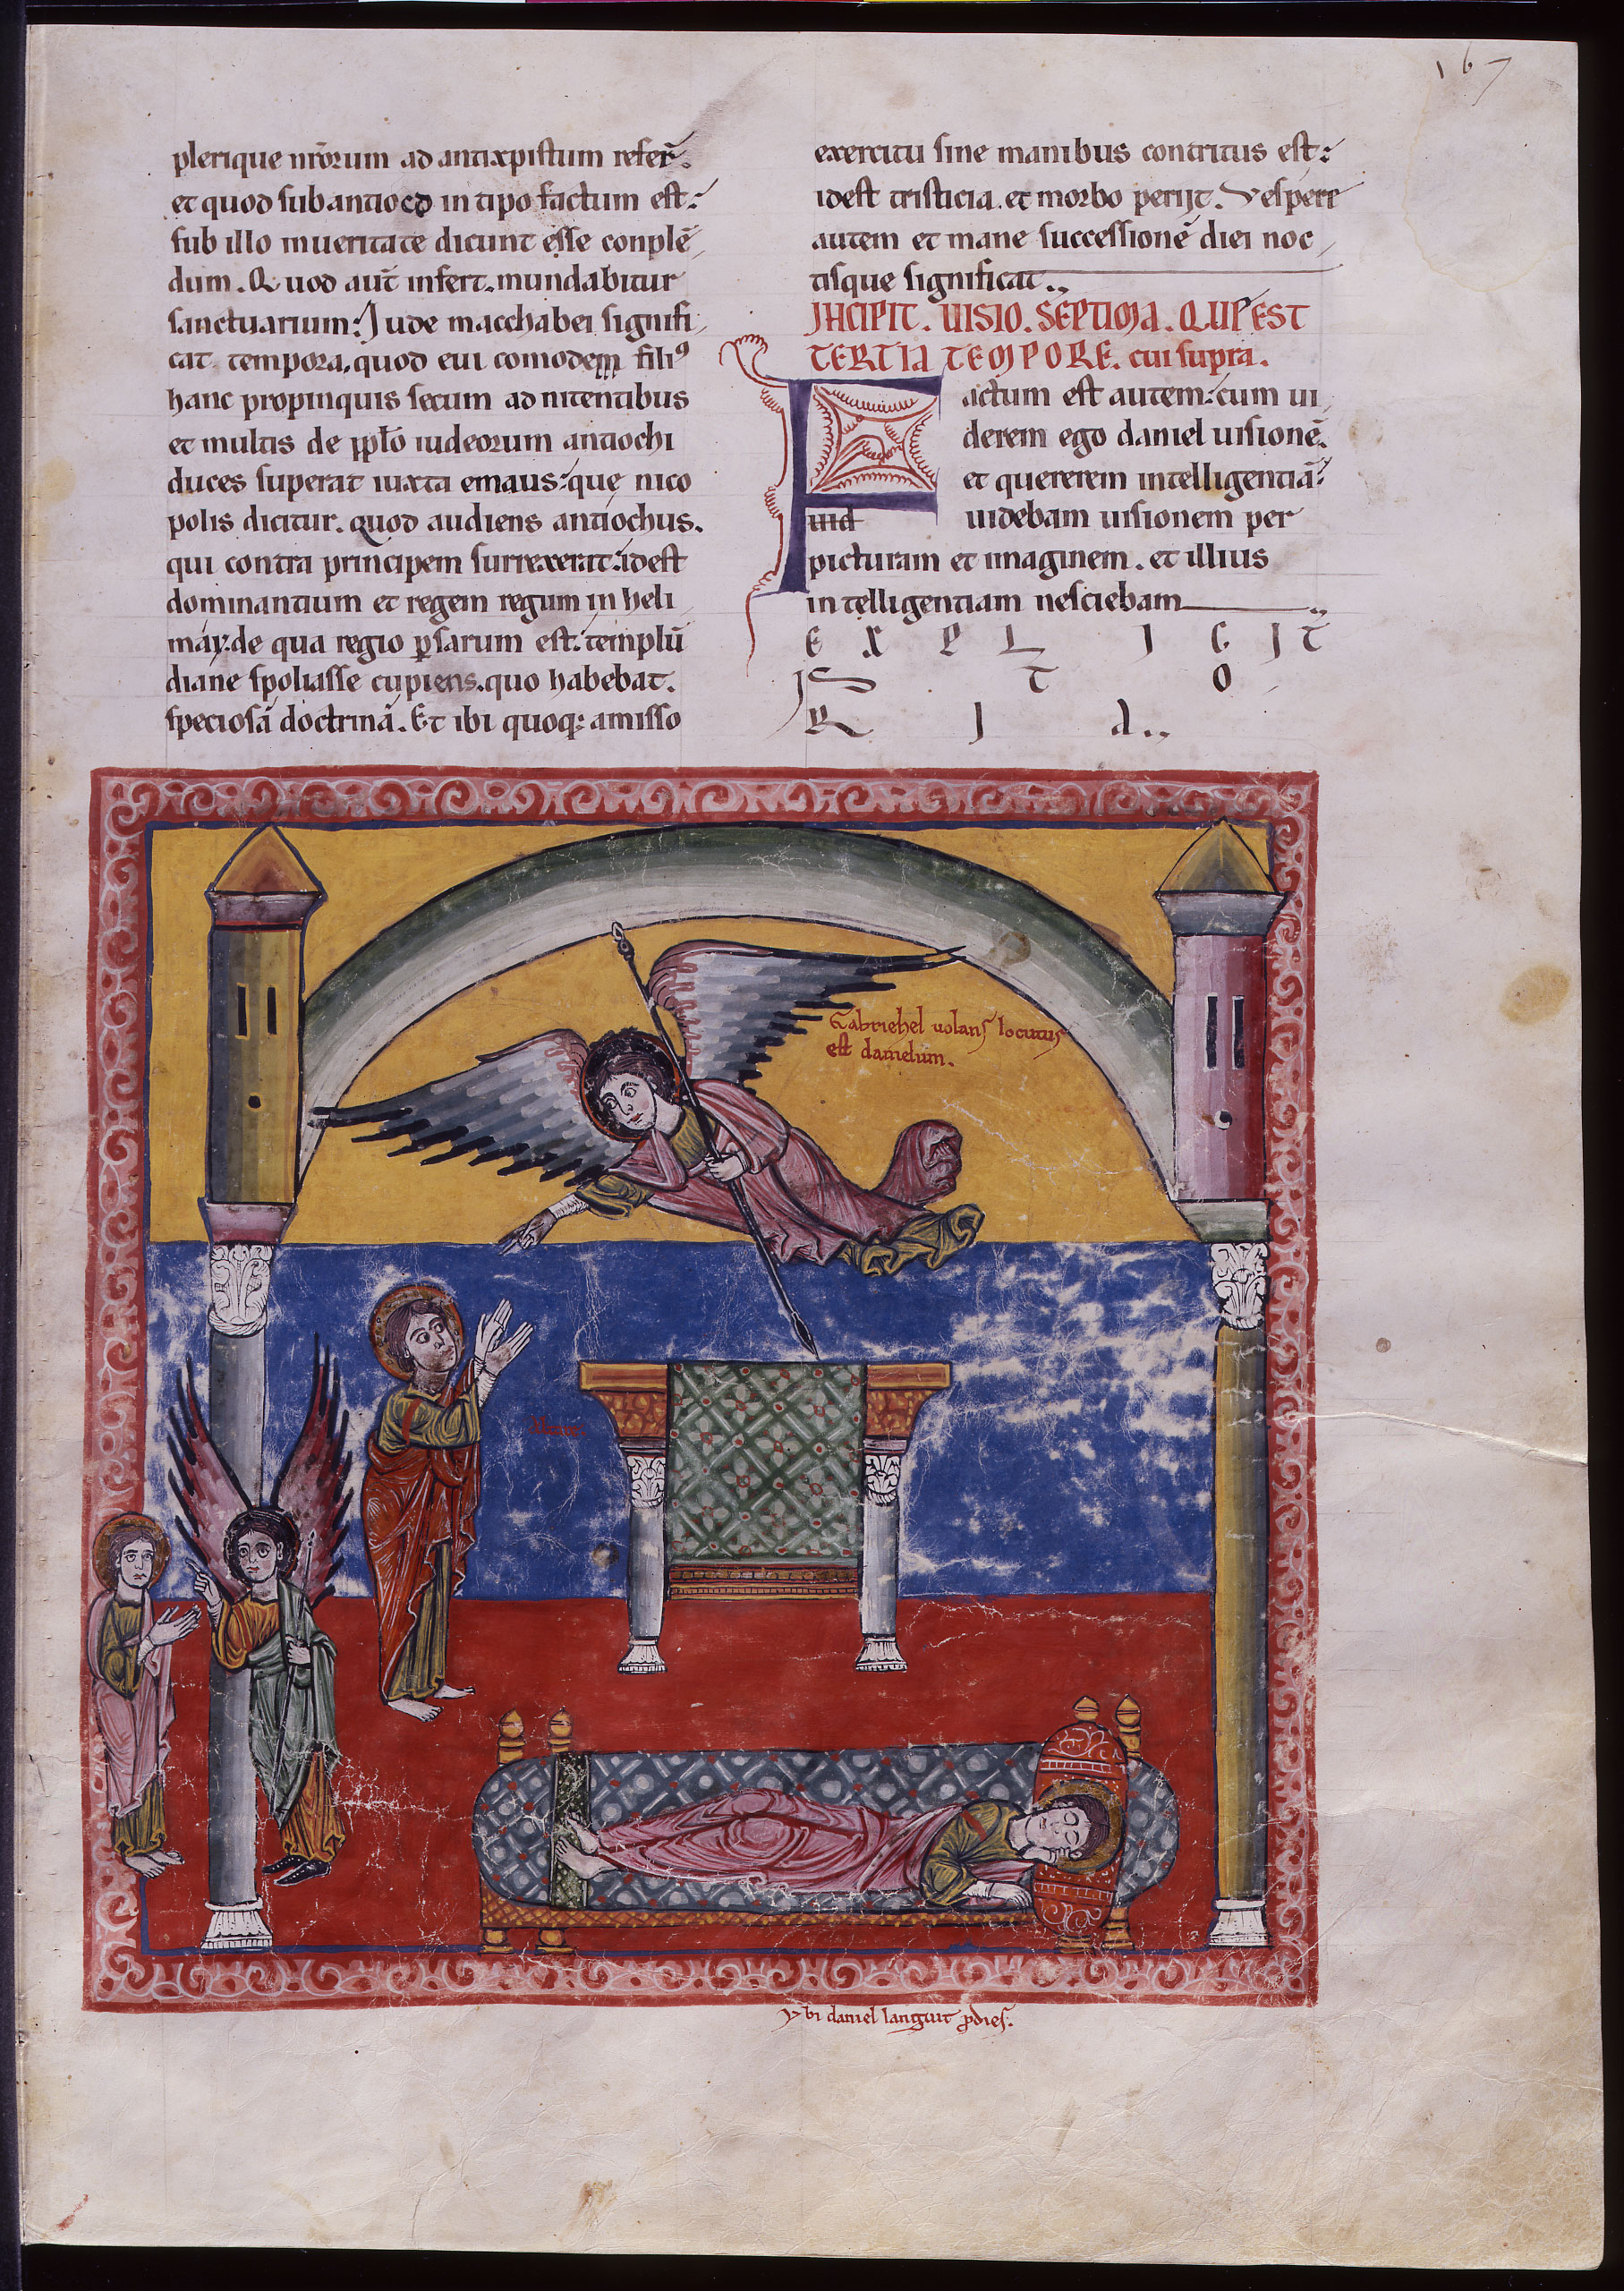 167
plerique nr̄orum ad antixpistum refer̄.
et quod sub antioco in tipo factum est:
sub illo in ueritate dicunt esse conplē
dum. Quod aut̄ infert. mundabitur
sanctuarium: Iude macchabei signifi
cat tempora, quod eui comodem filiꝰ
hanc propinquis secum ad nitentibus
et multis de pplō iudeorum antiochi
duces superat iuxta emaus: que nico
polis dicitur. quod audiens antiochus.
qui contra principem surrexerat: idest
dominantium et regem regum in heli
may: de qua regio ꝑsarum est: templū
diane spoliasse cupiens. quo habebat.
speciosā doctrinā. Et ibi quoq: amisso
exercitu sine manibus contritus est:
idest tristicia. et morbo perijt. Vespere
autem et mane successionē diei noc
tisque significat..
INCIPIT. UISIO. SEPTIMA. QUĘ EST
TERTIA TEMPORE. cui supra.
Factum est autem: cum ui
derem ego daniel uisionē.
et quererem intelligentiā:
uidebam uisionem per
picturam et imaginem. et illius
intelligentiam nesciebam..
E X P L I C I T
I S T O
R I A..
Gabriehel uolans locutus
est danielum.
Ybi daniel languit ꝑ dies: